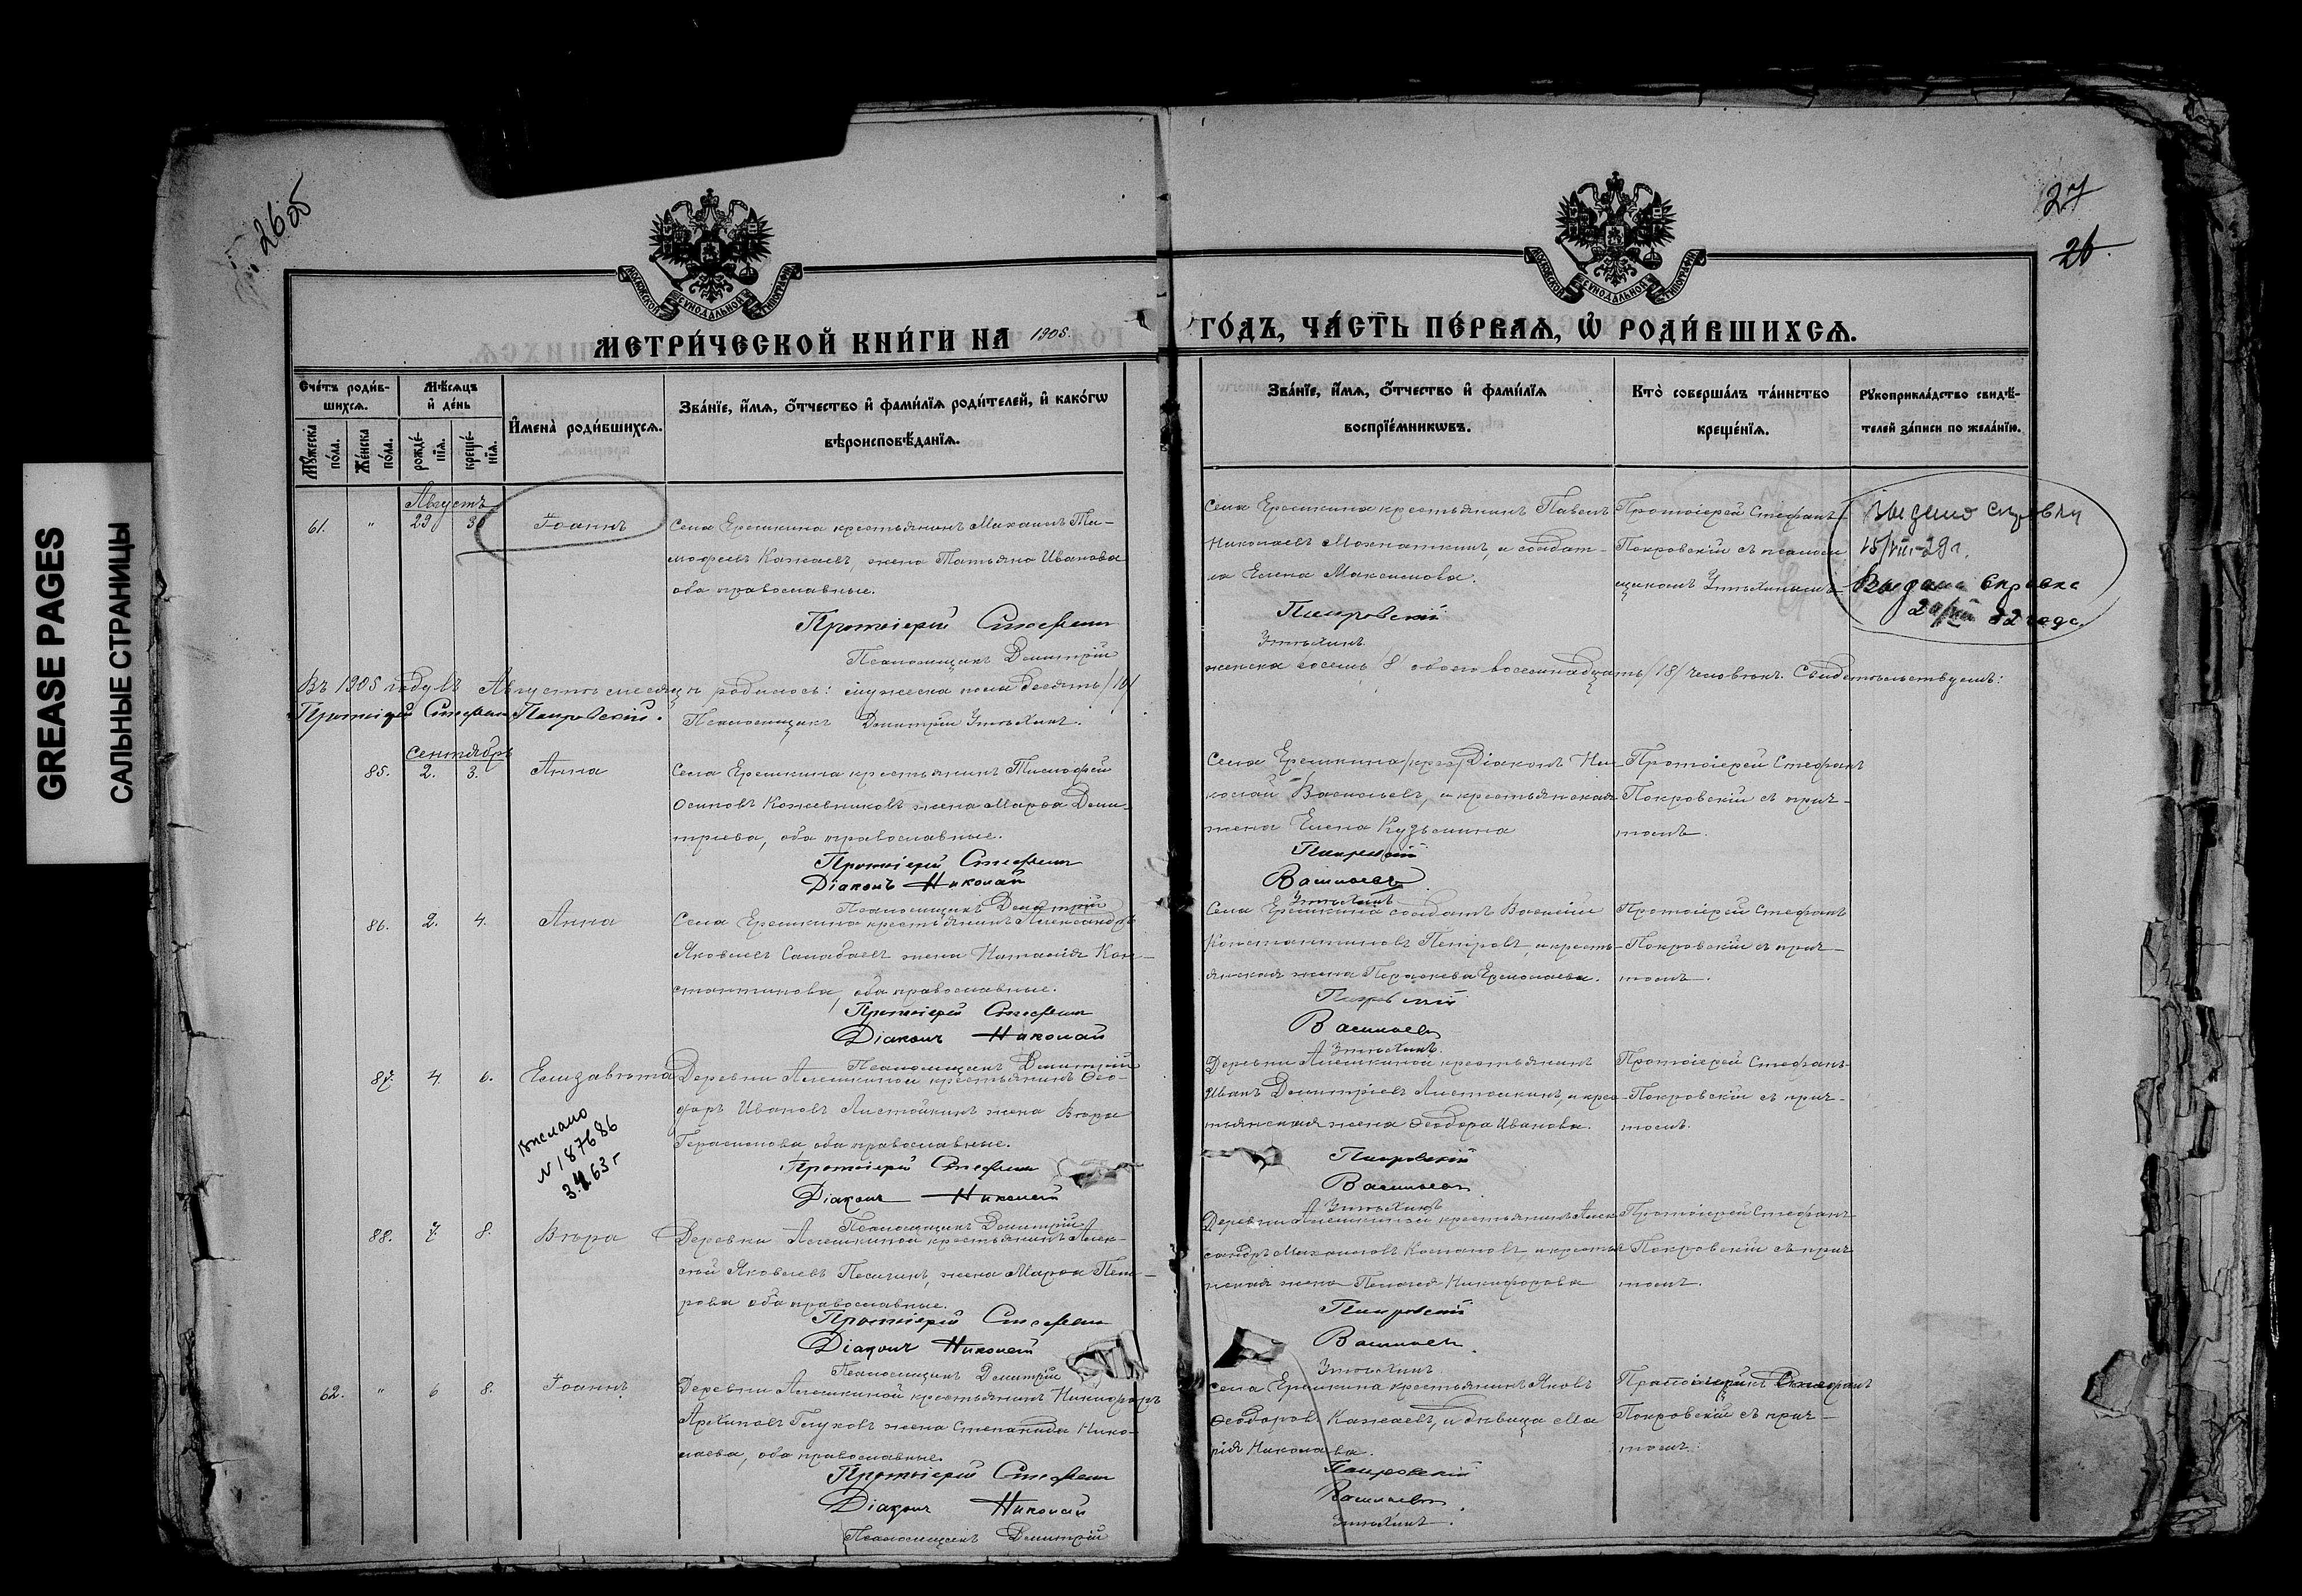 GREASE PAGES
САЛЬНЫЕ СТРАНИЦЫ
26об
27
26
МОСКОВСКОЙ СѴНОДАЛЬНОЙ ТИПОГРАФІИ
МОСКОВСКОЙ СѴНОДАЛЬНОЙ ТИПОГРАФІИ
МЕТРИ́ЧЕСКОЙ КНИ́ГИ НА 1905.
ГО́ДЪ, ЧА́СТЬ ПЕ́РВАѦ, Ѡ҆ РОДИ́ВШИХСѦ.
Сче́тъ роди́в-
шихсѧ.
Мꙋ́жеска по́ла.
Же́нска по́ла.
Мѣ́сѧцъ
и҆ де́нь
рожде́-
нїѧ.
креще́-
нїѧ.
И҆мена̀ роди́вшихсѧ.
Зва́нїе, и҆́мѧ, ѻ҆́тчество и҆ фами́лїѧ роди́телей, и҆ како́гѡ
вѣроисповѣ́данїѧ.
Зва́нїе, и҆́мѧ, ѻ҆́тчество и҆ фами́лїѧ
воспрїе́мникѡвъ.
Кто̀ соверша́лъ та́инство
креще́нїѧ.
Рꙋкоприкла́дство свидѣ́-
телей за́писи по жела́нїю.
Августъ
61. " 29 30 Іоаннъ
Села Ерешкина крестьянинъ Михаилъ Ти-
мофеевъ Кажаевъ, жена Татьяна Иванова
оба православные.
Протоіерей Стефанъ
Псаломщикъ Димитрій
Села Ерешкина крестьянинъ Павелъ
Николаевъ Мохнаткинъ, и солдат-
ка Елена Максимова.
Покровскій
Утѣхинъ
Протоіерей Стефанъ
Покровскій съ псалом
щикомъ Утѣхинымъ
Выдано справки
15/VIII-29г.
Выдана справка
32 года.
Въ 1905 году въ Августѣ месяцѣ родилось: мужеска пола десять /10/
женска восемь /8/ обоего восемнадцать /18/ человѣкъ. Свидѣтельствуемъ:
Протоіерей Стефанъ Покровскій.
Псаломщикъ Димитрій Утѣхинъ.
Сентябрь
85. 2. 3. Анна
Села Ерешкина крестьянинъ Тимофей
Осиповъ Кожевниковъ жена Марѳа Дими-
тріева, оба православные.
Протоіерей Стефанъ
Діаконъ Николай
Псаломщикъ Димитрій
Села Ерешкина /крес/ Діаконъ Ни-
колай Васильевъ, и крестьянская
жена Елена Кузьмина
Покровскій
Васильевъ
Утѣхинъ
Протоіерей Стефанъ
Покровскій съ прич-
томъ.
86. 2. 4. Анна
Села Ерешкина крестьянинъ Александръ
Яковлевъ Салабаевъ жена Наталія Кон-
стантинова, оба православные.
Протоіерей Стефанъ
Діаконъ Николай
Псаломщикъ Димитрій
Села Ерешкина солдатъ Василій
Константиновъ Петровъ, и кресть-
янская жена Параскева Ермолаева.
Покровскій
Васильевъ
Утѣхинъ
Протоіерей Стефанъ
Покровскій съ прич-
томъ.
87. 4. 6. Елизавета
Выслано
N187686
3.4.63 г
Деревни Алешкиной крестьянинъ Ѳео-
доръ Ивановъ Листочкинъ жена Вѣра
Герасимова, оба православные.
Протоіерей Стефанъ
Діаконъ Николай
Псаломщикъ Димитрій
Деревни Алешкиной крестьянинъ
Иванъ Димитріевъ Листочкинъ, и крес-
тьянская жена Ѳеодора Иванова.
Покровскій
Васильевъ
Утѣхинъ
Протоіерей Стефанъ
Покровскій съ прич-
томъ.
88. 7. 8. Вѣра
Деревни Алешкиной крестьянинъ Алек-
сѣй Яковлевъ Песчинъ, жена Марѳа Пет-
рова оба православные.
Протоіерей Стефанъ
Діаконъ Николай
Псаломщикъ Димитрій
Деревни Алешкиной крестьянинъ Алек
сандръ Михаиловъ Костановъ, и крестья
нская жена Пелагея Никифорова
Покровскій
Васильевъ.
Утѣхинъ
Протоіерей Стефанъ
Покровскій съ прич
томъ.
62. " 6 8. Іоаннъ
Деревни Алешкиной крестьянинъ Никифоръ
Архиповъ Глуховъ жена Степанида Нико-
лаева, оба православные.
Протоіерей Стефанъ
Діаконъ Николай
Псаломщикъ Димитрій
Села Ерешкина крестьянинъ Яковъ
Ѳеодоровъ Кажаевъ, и дѣвица Ма
рія Николаева.
Покровскій
Васильевъ.
Утѣхинъ.
Протоіерей Стефанъ
Покровскій съ прич-
томъ.